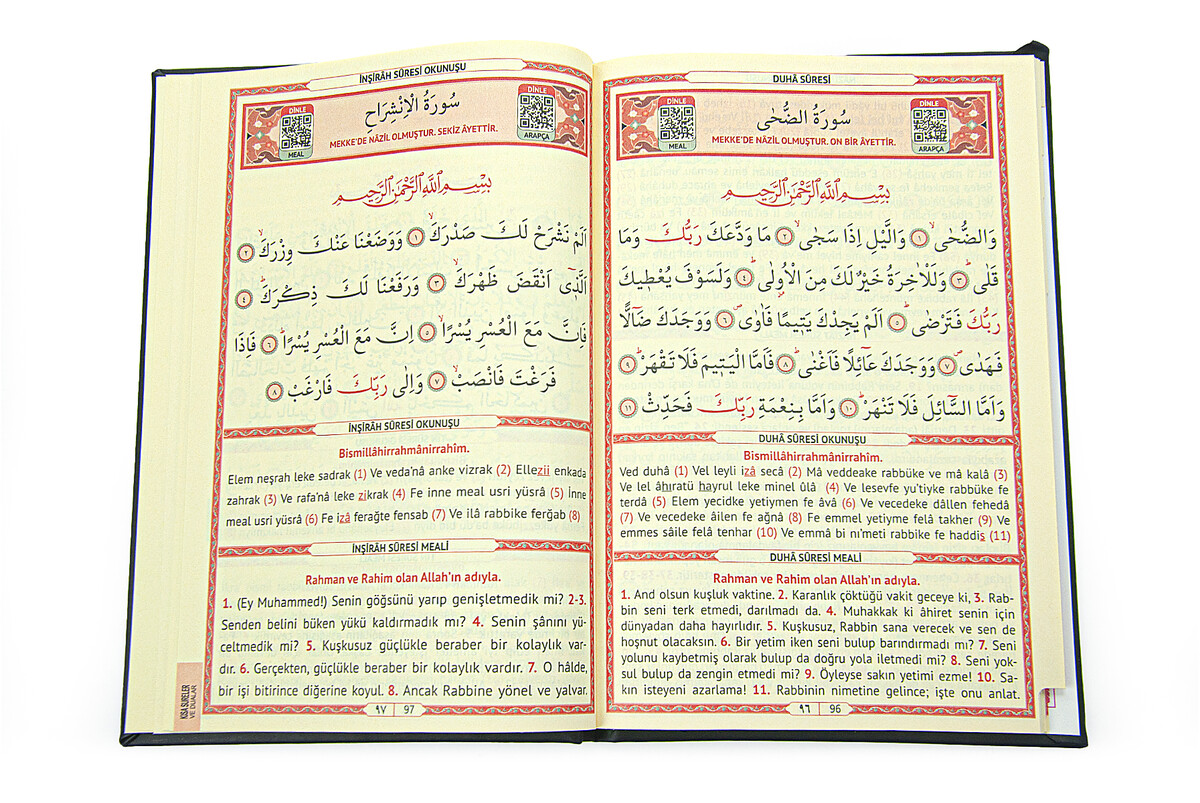 DUHÂ SÛRESİ
DİNLE
MEAL
سُورَةُ الضُّحٰى
MEKKE'DE NÂZİL OLMUŞTUR. ON BİR ÂYETTİR.
DİNLE
ARAPÇA
بِسْمِ اللّٰهِ الرَّحْمٰنِ الرَّحِيمِ
وَالضُّحٰىۙ ﴿١﴾ وَالَّيْلِ اِذَا سَجٰىۙ ﴿٢﴾ مَا وَدَّعَكَ رَبُّكَ وَمَا
قَلٰىۜ ﴿٣﴾ وَلَلْاٰخِرَةُ خَيْرٌ لَكَ مِنَ الْاُو۫لٰىۜ ﴿٤﴾ وَلَسَوْفَ يُعْط۪يكَ
رَبُّكَ فَتَرْضٰىۜ ﴿٥﴾ اَلَمْ يَجِدْكَ يَت۪يمًا فَاٰوٰىۖ ﴿٦﴾ وَوَجَدَكَ ضَٓالًّا
فَهَدٰىۖ ﴿٧﴾ وَوَجَدَكَ عَٓائِلًا فَاَغْنٰىۜ ﴿٨﴾ فَاَمَّا الْيَت۪يمَ فَلَا تَقْهَرْۜ ﴿٩﴾
وَاَمَّا السَّٓائِلَ فَلَا تَنْهَرْۜ ﴿١٠﴾ وَاَمَّا بِنِعْمَةِ رَبِّكَ فَحَدِّثْ ﴿١١﴾
DUHÂ SÛRESİ OKUNUŞU
Bismillâhirrahmânirrahîm.
Ved duhâ (1) Vel leyli izâ secâ (2) Mâ veddeake rabbüke ve mâ kalâ (3)
Ve lel âhıratü hayrul leke minel ûlâ (4) Ve lesevfe yu'tiyke rabbüke fe
terdâ (5) Elem yecidke yetiymen fe âvâ (6) Ve vecedeke dâllen fehedâ
(7) Ve vecedeke âilen fe ağnâ (8) Fe emmel yetiyme felâ takher (9) Ve
emmes sâile felâ tenhar (10) Ve emmâ bi nı'meti rabbike fe haddis (11)
DUHÂ SÛRESİ MEALİ
Rahman ve Rahim olan Allah'ın adıyla.
1. And olsun kuşluk vaktine. 2. Karanlık çöktüğü vakit geceye ki, 3. Rab-
bin seni terk etmedi, darılmadı da. 4. Muhakkak ki âhiret senin için
dünyadan daha hayırlıdır. 5. Kuşkusuz, Rabbin sana verecek ve sen de
hoşnut olacaksın. 6. Bir yetim iken seni bulup barındırmadı mı? 7. Seni
yolunu kaybetmiş olarak bulup da doğru yola iletmedi mi? 8. Seni yok-
sul bulup da zengin etmedi mi? 9. Öyleyse sakın yetimi ezme! 10. Sa-
kın isteyeni azarlama! 11. Rabbinin nimetine gelince; işte onu anlat.
٩٦ 96
İNŞİRÂH SÛRESİ OKUNUŞU
DİNLE
MEAL
سُورَةُ الْاِنْشِرَاحِ
MEKKE'DE NÂZİL OLMUŞTUR. SEKİZ ÂYETTİR.
DİNLE
ARAPÇA
بِسْمِ اللّٰهِ الرَّحْمٰنِ الرَّحِيمِ
اَلَمْ نَشْرَحْ لَكَ صَدْرَكَۙ ﴿١﴾ وَوَضَعْنَا عَنْكَ وِزْرَكَۙ ﴿٢﴾
اَلَّذ۪ٓي اَنْقَضَ ظَهْرَكَۙ ﴿٣﴾ وَرَفَعْنَا لَكَ ذِكْرَكَۜ ﴿٤﴾
فَاِنَّ مَعَ الْعُسْرِ يُسْرًاۙ ﴿٥﴾ اِنَّ مَعَ الْعُسْرِ يُسْرًاۜ ﴿٦﴾ فَاِذَا
فَرَغْتَ فَانْصَبْۙ ﴿٧﴾ وَاِلٰى رَبِّكَ فَارْغَبْ ﴿٨﴾
İNŞİRÂH SÛRESİ OKUNUŞU
Bismillâhirrahmânirrahîm.
Elem neşrah leke sadrak (1) Ve veda'nâ anke vizrak (2) Ellezii enkada
zahrak (3) Ve rafa'nâ leke zikrak (4) Fe inne meal usri yüsrâ (5) İnne
meal usri yüsrâ (6) Fe izâ ferağte fensab (7) Ve ilâ rabbike ferğab (8)
İNŞİRÂH SÛRESİ MEALİ
Rahman ve Rahim olan Allah'ın adıyla.
1. (Ey Muhammed!) Senin göğsünü yarıp genişletmedik mi? 2-3.
Senden belini büken yükü kaldırmadık mı? 4. Senin şânını yü-
celtmedik mi? 5. Kuşkusuz güçlükle beraber bir kolaylık var-
dır. 6. Gerçekten, güçlükle beraber bir kolaylık vardır. 7. O hâlde,
bir işi bitirince diğerine koyul. 8. Ancak Rabbine yönel ve yalvar.
KISA SURELER
VE DUALAR
٩٧ 97